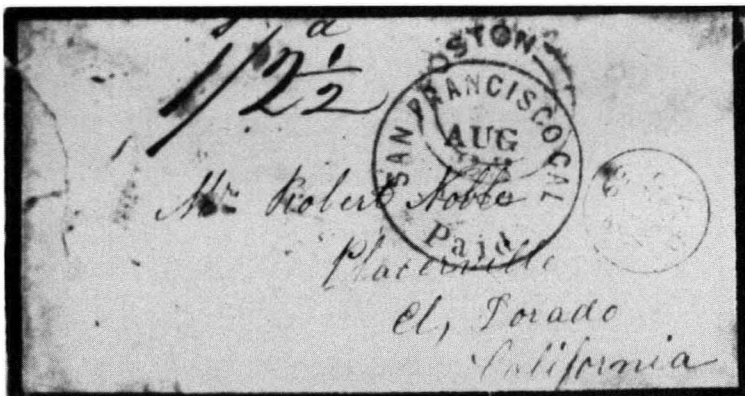 1/2½
BOSTON
SAN FRANCISCO CAL
AUG
Paid
Mr Robert Noble
Placerville
El, Dorado
California